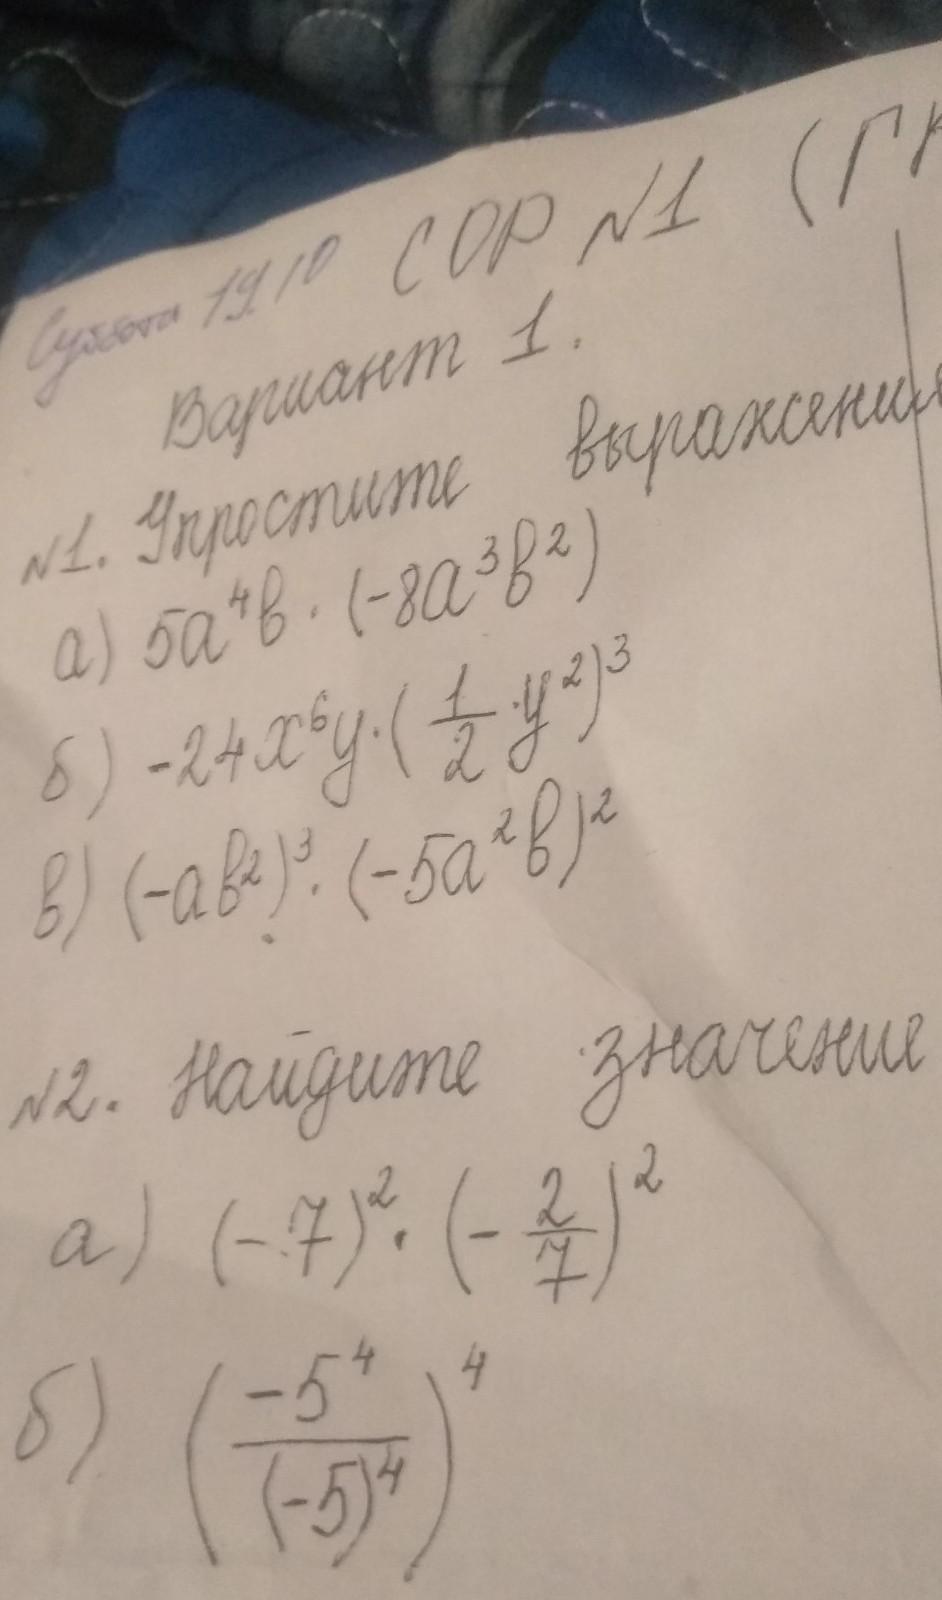 Суббота 19.10 СОР №1 (Г
Вариант 1.
№1. Упростите выражение
а) 5a⁴b · (-8a³b²)
б) -24x⁶y · (1/2 · y²)³
в) (-ab²)³ · (-5a²b)²
№2. Найдите значение
а) (-7)² · (-2/7)²
б) (-5⁴/(-5)⁴)⁴